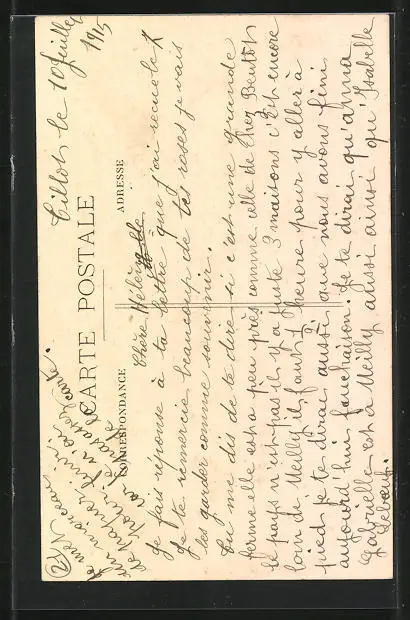 Tillot le 10 Juillet
1915
CARTE POSTALE
CORRESPONDANCE
ADRESSE
Chère Hélène
Je fais réponse à ta lettre que j'ai recue le 7
Je te remercie beaucoup de tes roses je vais
les garder comme souvenir.
Tu me dis de te dire si c'est une grande
ferme elle est a peu près comme celle de Chez Beutot
le pays n'est pas il y a juste 3 maisons c'est encore
loin de Meilly il faut 1 heure pour y aller à
pied je te dirai aussi que nous avons fini
aujourd'hui fauchaison. Je te dirai qu'anna
Gabrielle est a Meilly aussi ainsi qu'Isabelle
Lebeuf.
(2)